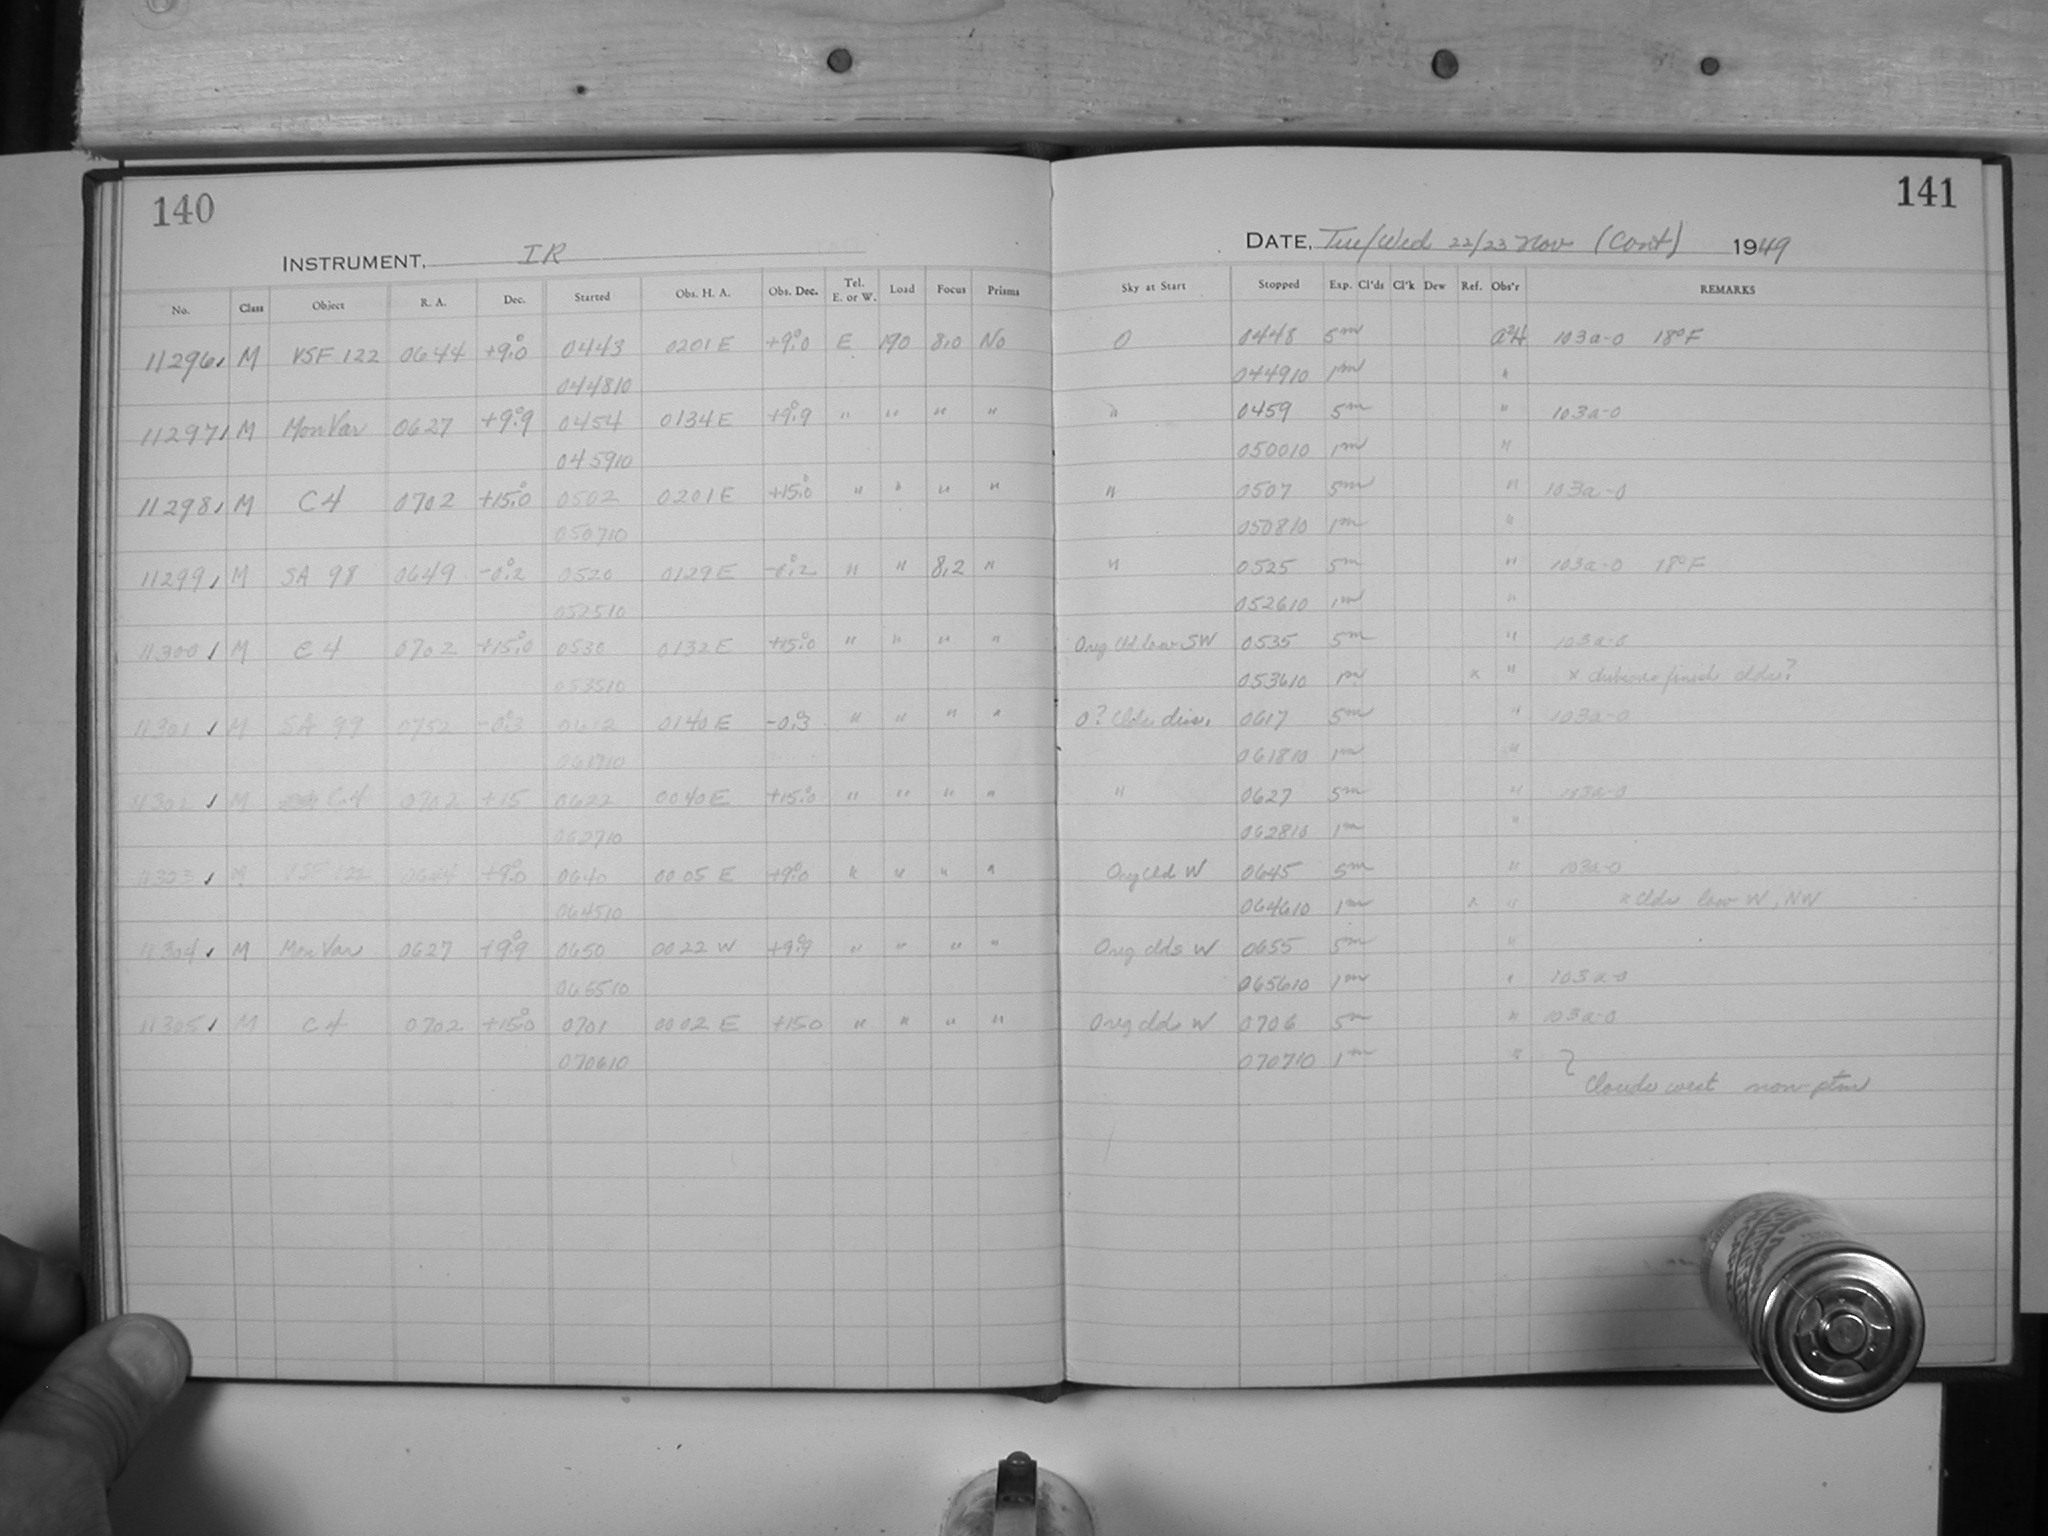 140
INSTRUMENT, IR
No. Class Object R. A. Dec. Started Obs. H. A. Obs. Dec. Tel. E. or W. Load Focus Prisms
11296 M VSF 122 0644 +9.°0 0443 0201 E +9.°0 E 190 8.0 No
044810
11297 M Mon Var 0627 +9.°9 0454 0134 E +9.°9 " " " "
045910
11298 M C4 0702 +15.°0 0502 0201 E +15.°0 " " " "
050710
11299 M SA 98 0649 -0.°2 0520 0129 E -0.°2 " " 8.2 "
052510
11300 M C4 0702 +15.°0 0530 0132 E +15.°0 " " " "
053510
11301 M SA 99 0752 -0.°3 0612 0140 E -0.°3 " " " "
061710
11302 M C4 0702 +15 0622 0040 E +15.°0 " " " "
062710
11303 M VSF 122 0644 +9.°0 0640 0005 E +9.°0 " " " "
064510
11304 M Mon Var 0627 +9.°9 0650 0022 W +9.°9 " " " "
065510
11305 M C4 0702 +15.°0 0701 0002 E +15.0 " " " "
070610
141
DATE, Tue/Wed 22/23 Nov (Cont) 1949
Sky at Start Stopped Exp. Cl'ds Cl'k Dew Ref. Obs'r REMARKS
0 0448 5m 103a-0 18°F
044910 1m "
" 0459 5m " 103a-0
050010 1m "
" 0507 5m " 103a-0
050810 1m "
" 0525 5m " 103a-0 18°F
052610 1m "
Oreg Cld low SW 0535 5m " 103a-0
053610 1m x " x dubious finish clds?
0? Clds diss. 0617 5m " 103a-0
061810 1m "
" 0627 5m " 103a-0
062810 1m "
Oreg Cld W 0645 5m " 103a-0
064610 1m x " x Clds low W, NW
Oreg clds W 0655 5m "
065610 1m " 103a-0
Oreg clds W 0706 5m " 103a-0
070710 1m "
Clouds west non-ptm